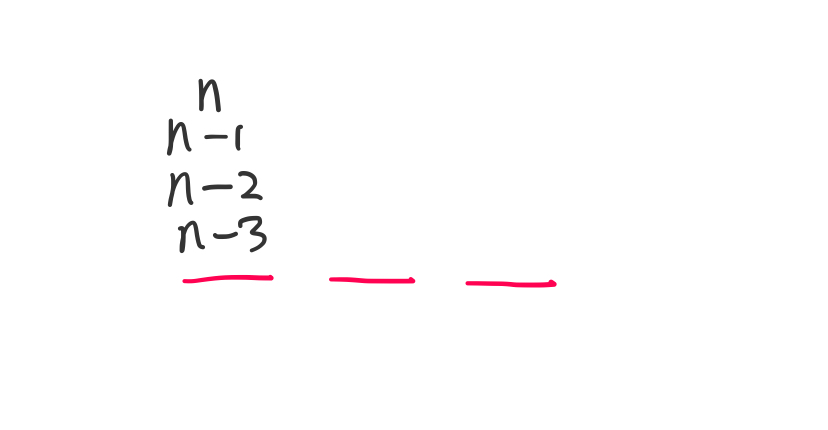 n
n-1
n-2
n-3